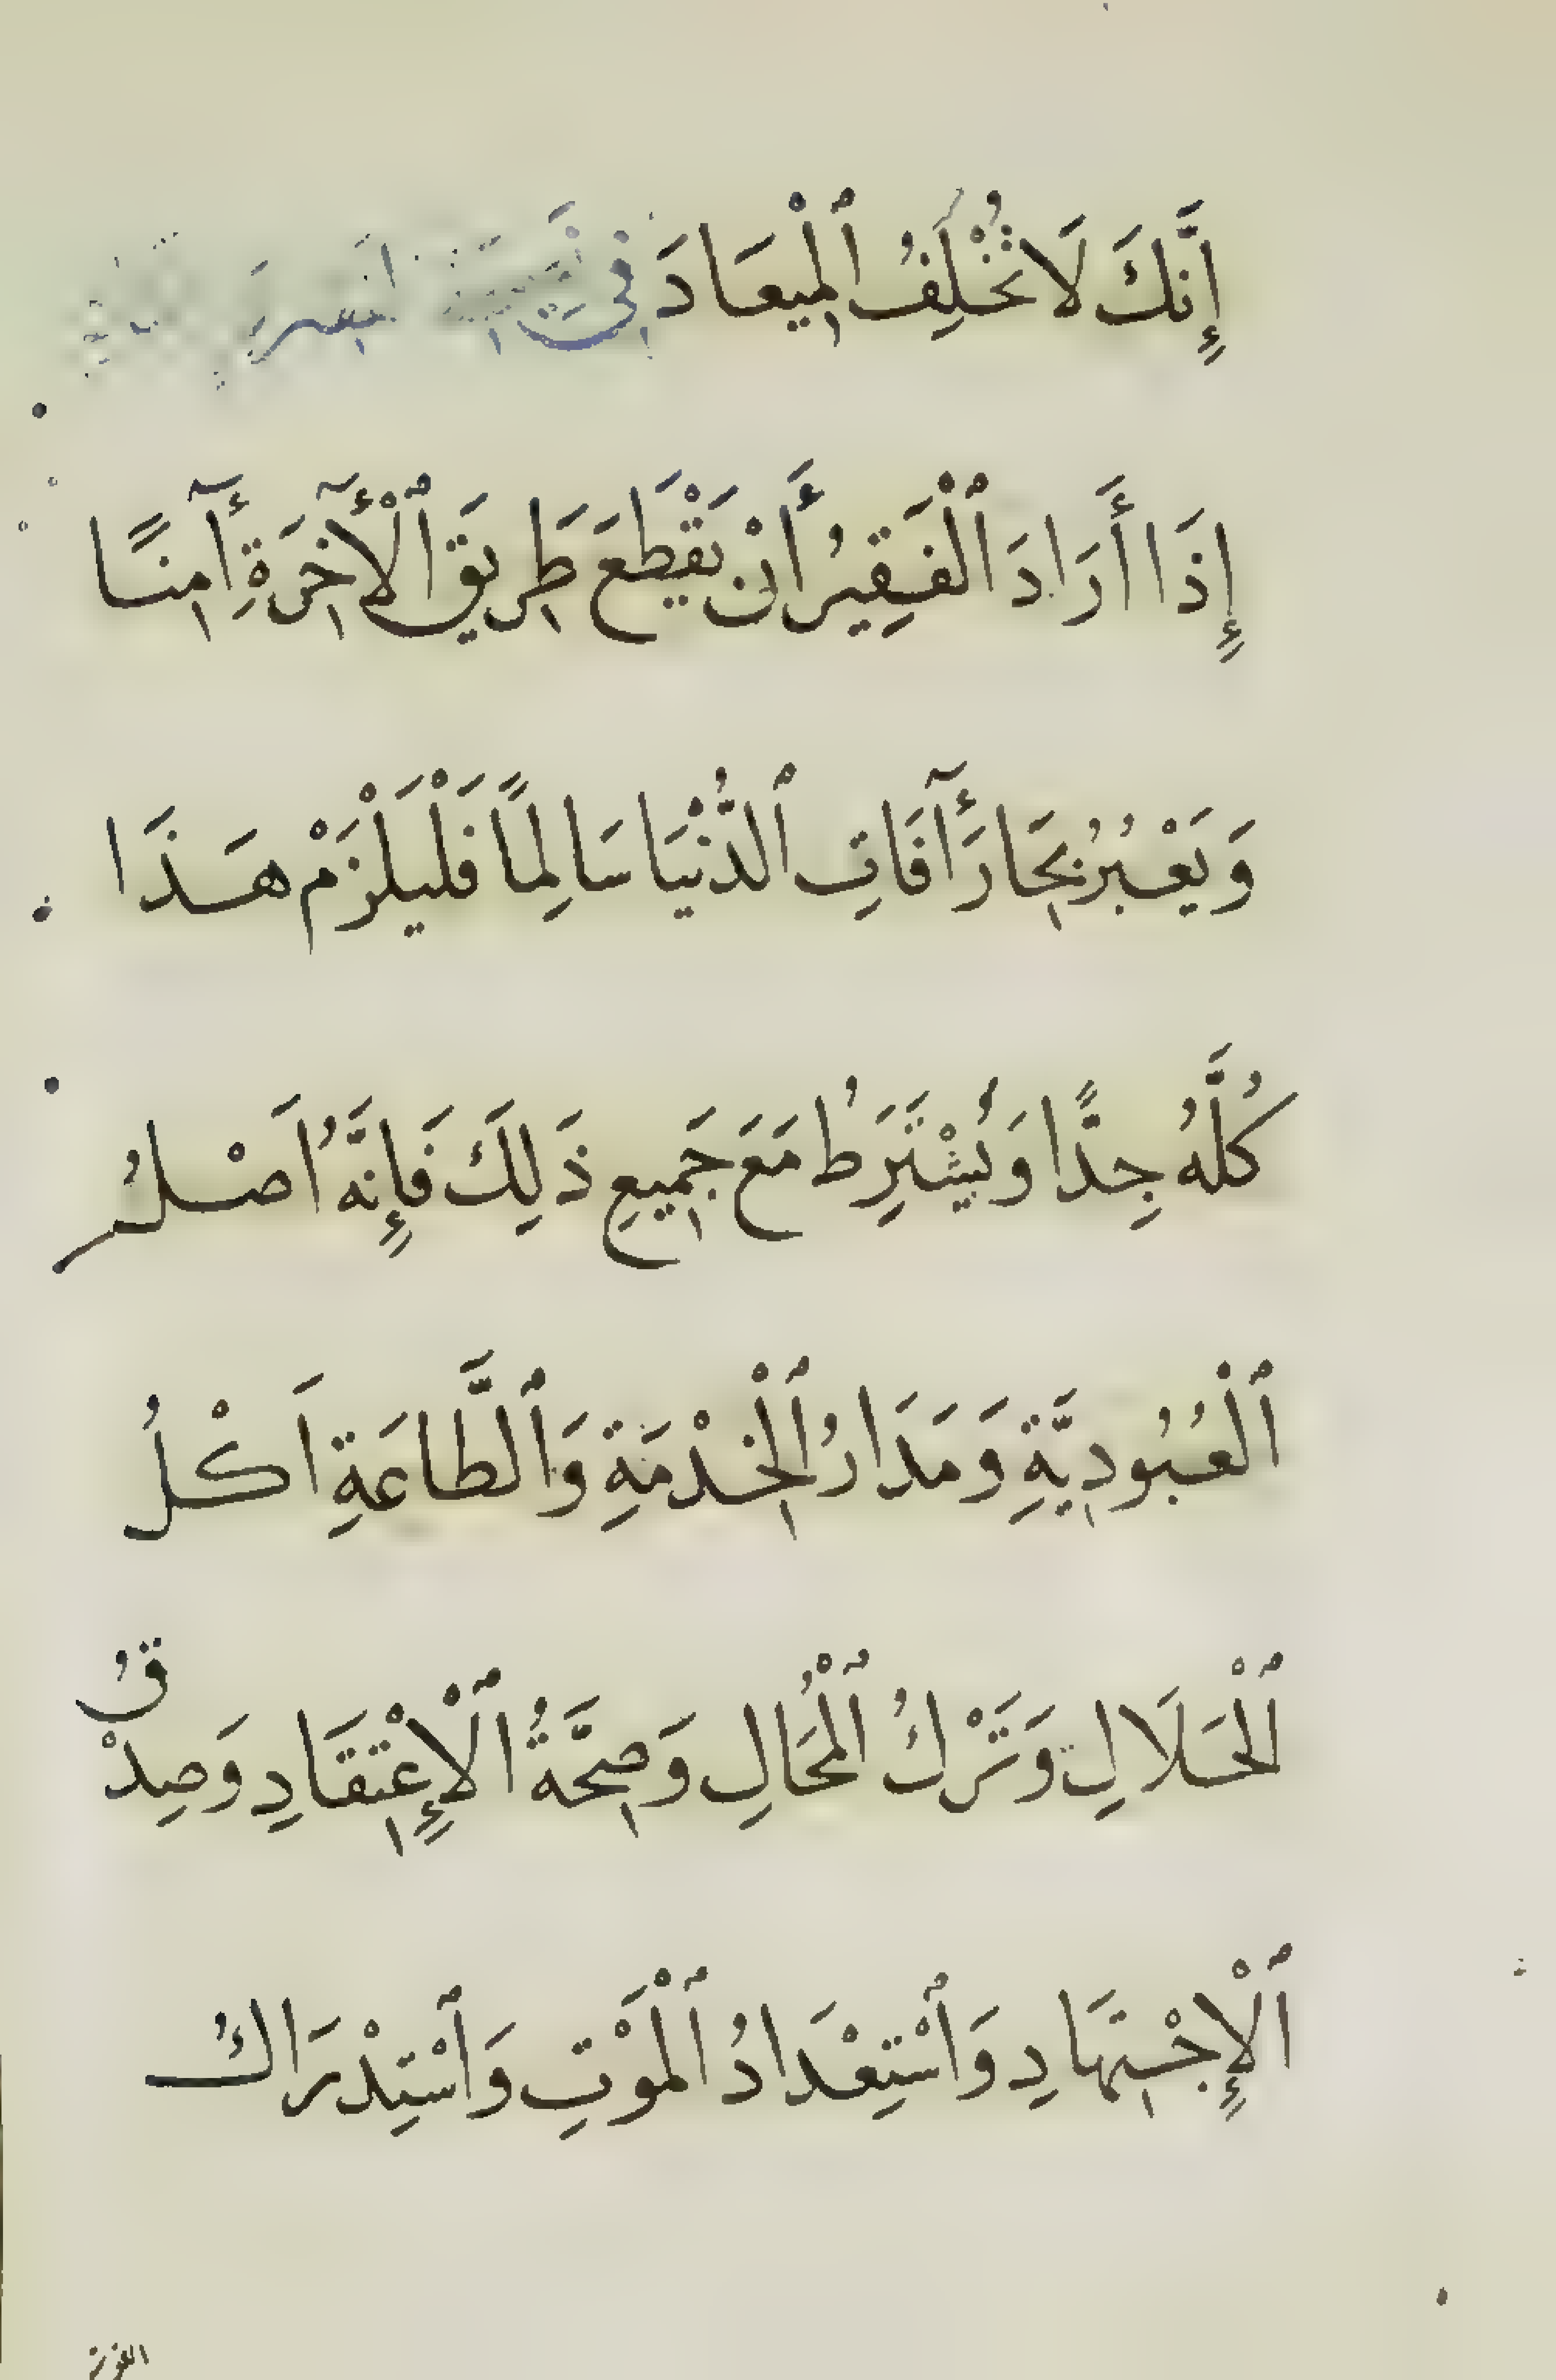 إِنَّكَ لَا تُخْلِفُ ٱلْمِيعَادَ فِي
إِذَا أَرَادَ ٱلْفَقِيرُ أَنْ يَقْطَعَ طَرِيقَ ٱلْأٓخِرَةِ أٓمِنًا
وَيَعْبُرُ بِحَارَ أٓفَاتِ ٱلدُّنْيَا سَالِمًا فَلْيَلْزَمْ هَذَا
كُلَّهُ جِدًّا وَيُشْتَرَطُ مَعَ جَمِيعِ ذَلِكَ فَإِنَّهُ اَصْلُ
ٱلْعُبُودِيَّةِ وَمَدَارُ ٱلْخِدْمَةِ وَٱلطَّاعَةِ اَكْلُ
ٱلْحَلَالِ وَتَرْكُ ٱلْمُحَالِ وَصِحَّةُ ٱلْإِعْتِقَادِ وَصِدْقُ
ٱلْإِجْتِهَادِ وَٱسْتِعْدَادُ ٱلْمَوْتِ وَٱسْتِدْرَاكُ
الفوت